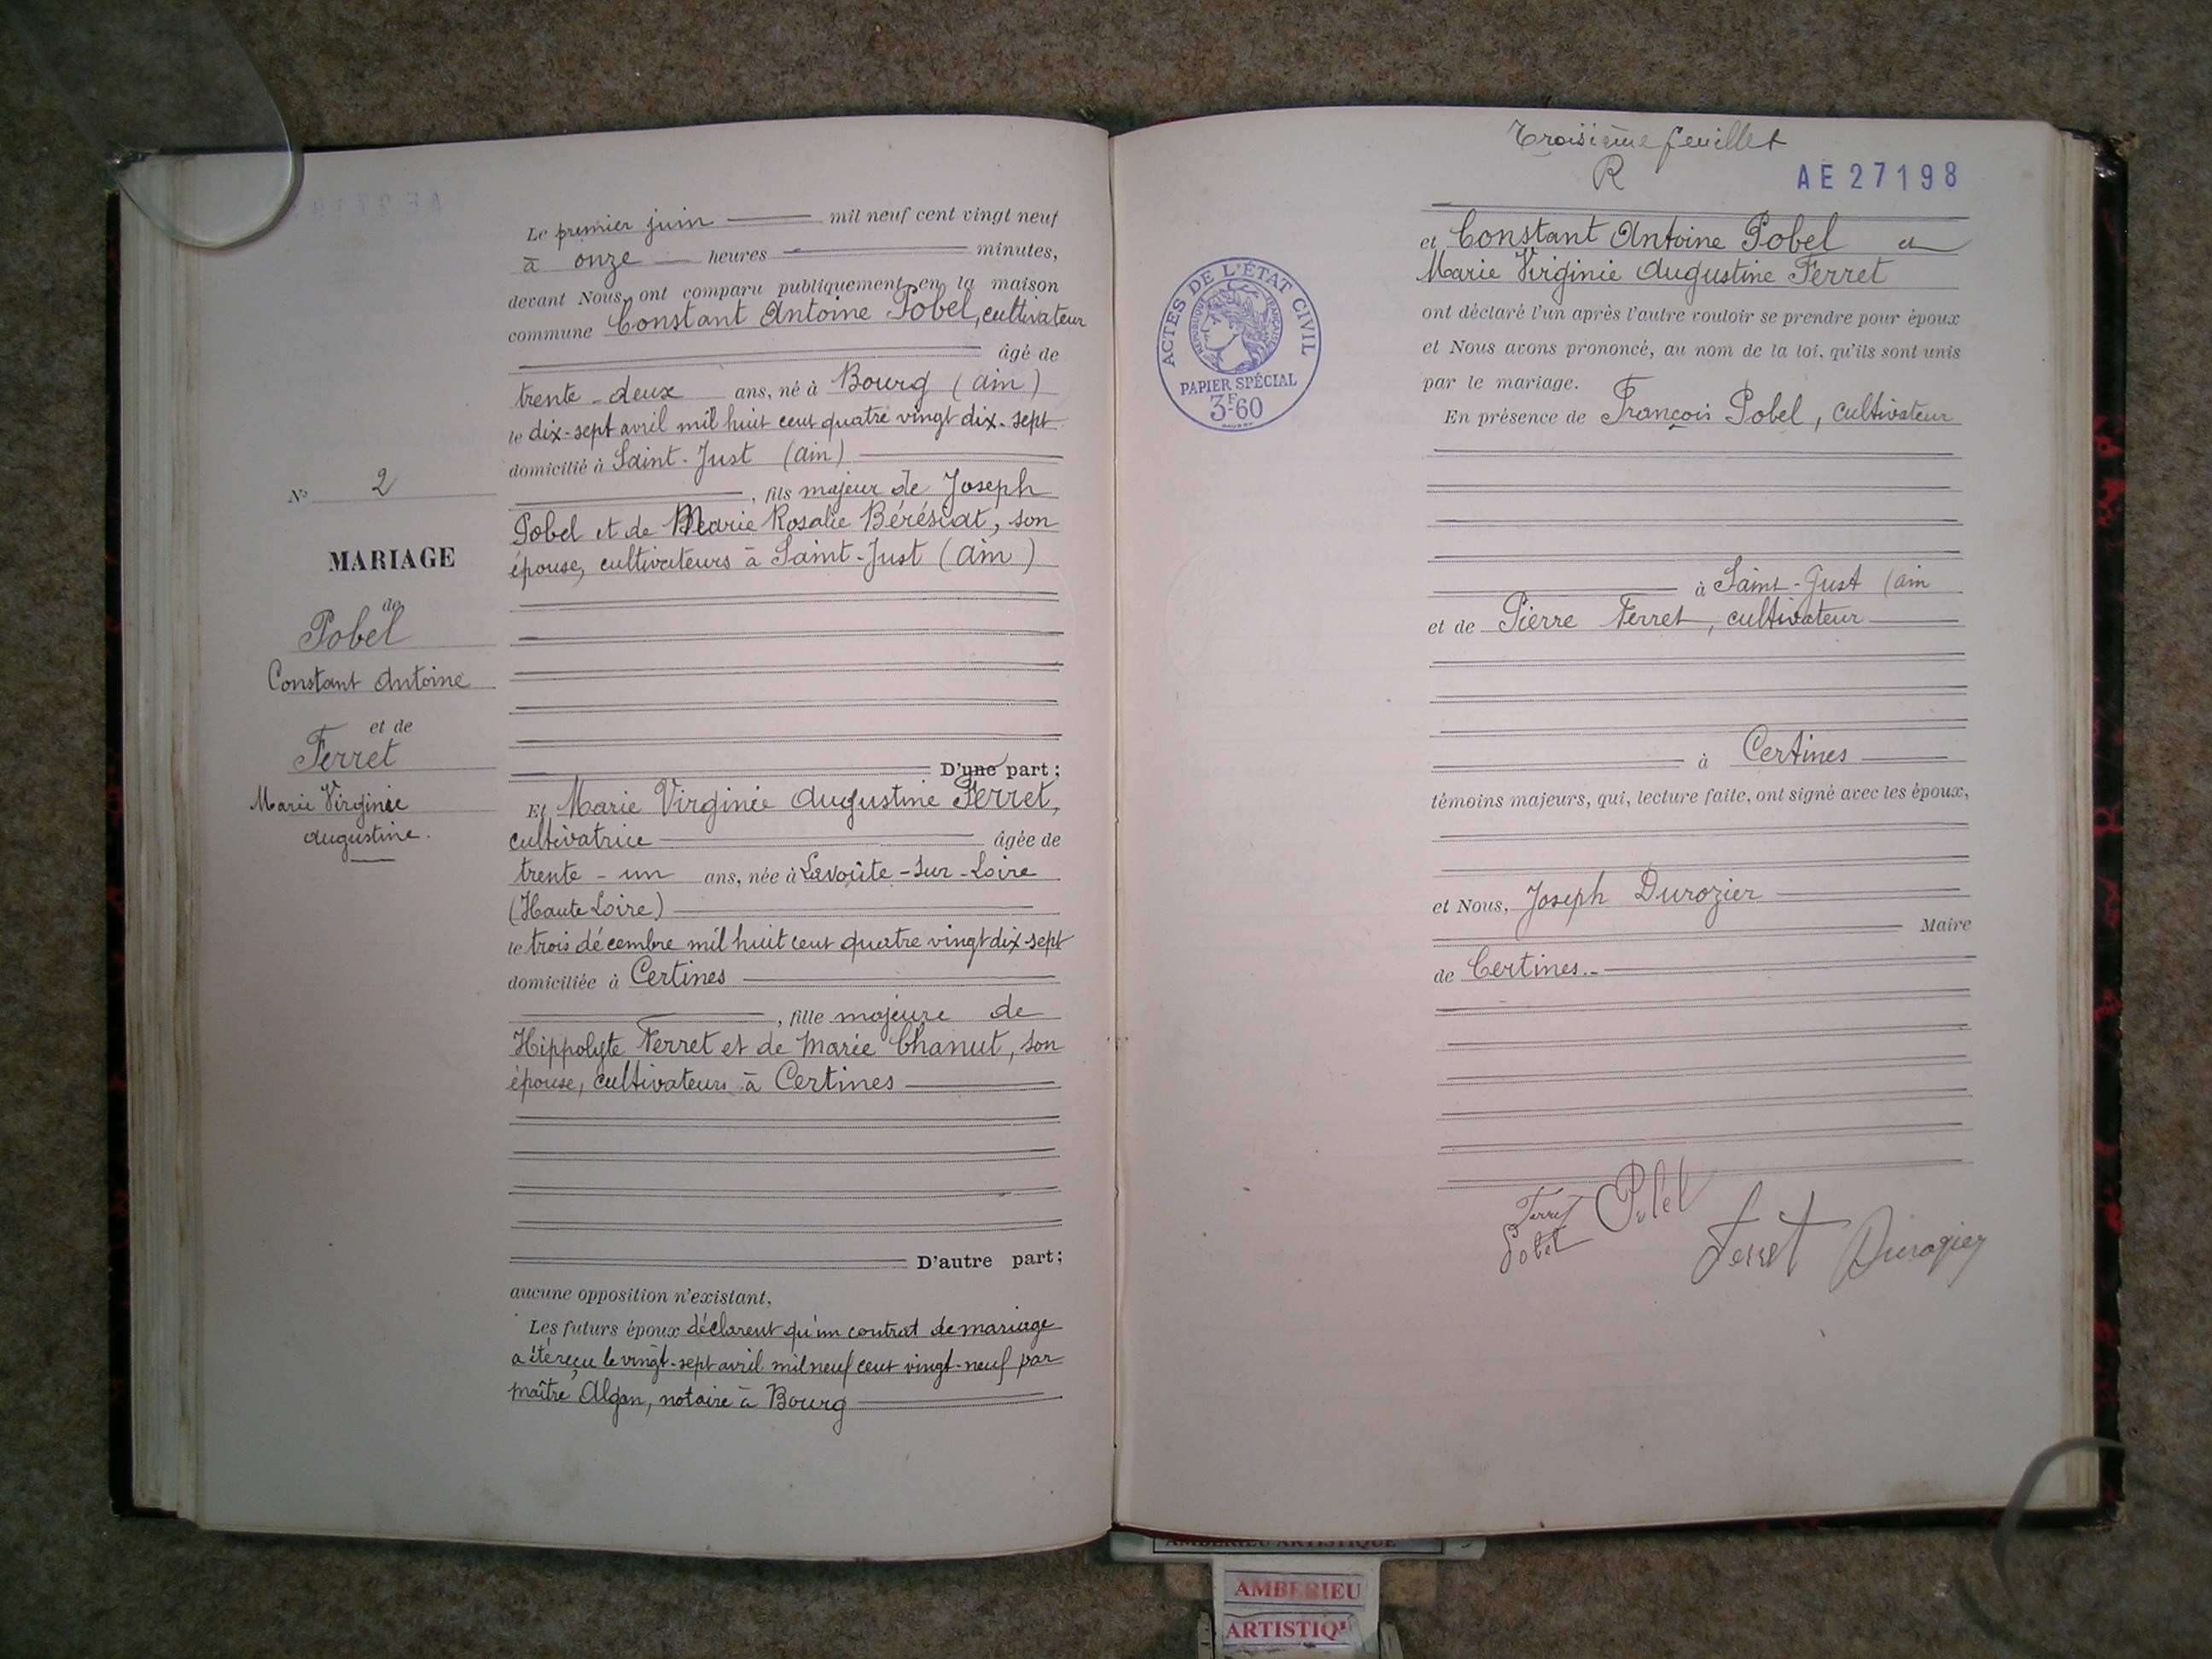 Le premier juin mil neuf cent vingt neuf
à onze heures minutes,
devant Nous, ont comparu publiquement en la maison
commune Constant Antoine Pobel, cultivateur
âgé de
trente-deux ans, né à Bourg (ain)
le dix-sept avril mil huit cent quatre vingt dix-sept
domicilié à Saint-Just (ain)
, fils majeur de Joseph
Pobel et de Marie Rosalie Béréziat, son
épouse, cultivateurs à Saint-Just (ain)
No 2
MARIAGE
de
Pobel
Constant Antoine
et de
Ferret
Marie Virginie
Augustine.
D'une part ;
Et Marie Virginie Augustine Ferret,
cultivatrice âgée de
trente-un ans, née à Lavoûte-sur-Loire
(Haute Loire)
le trois décembre mil huit cent quatre vingt dix-sept
domiciliée à Certines
, fille majeure de
Hippolyte Ferret et de Marie Chanut, son
épouse, cultivateurs à Certines
D'autre part ;
aucune opposition n'existant,
Les futurs époux déclarent qu'un contrat de mariage
a été reçu le vingt-sept avril mil neuf cent vingt-neuf par
maître Algan, notaire à Bourg
Troisième feuillet
R
AE27198
ACTES DE L'ÉTAT CIVIL
RÉPUBLIQUE FRANÇAISE
PAPIER SPÉCIAL
3F60
et Constant Antoine Pobel et
Marie Virginie Augustine Ferret
ont déclaré l'un après l'autre vouloir se prendre pour époux
et Nous avons prononcé, au nom de la loi, qu'ils sont unis
par le mariage.
En présence de François Pobel, cultivateur
à Saint-Just (ain
et de Pierre Ferret, cultivateur
à Certines
témoins majeurs, qui, lecture faite, ont signé avec les époux,
et Nous, Joseph Durozier
Maire
de Certines.-
Ferret Pobel
Pobel Ferret Durozier
AMBERIEU ARTISTIQUE
AMBERIEU
ARTISTIQU